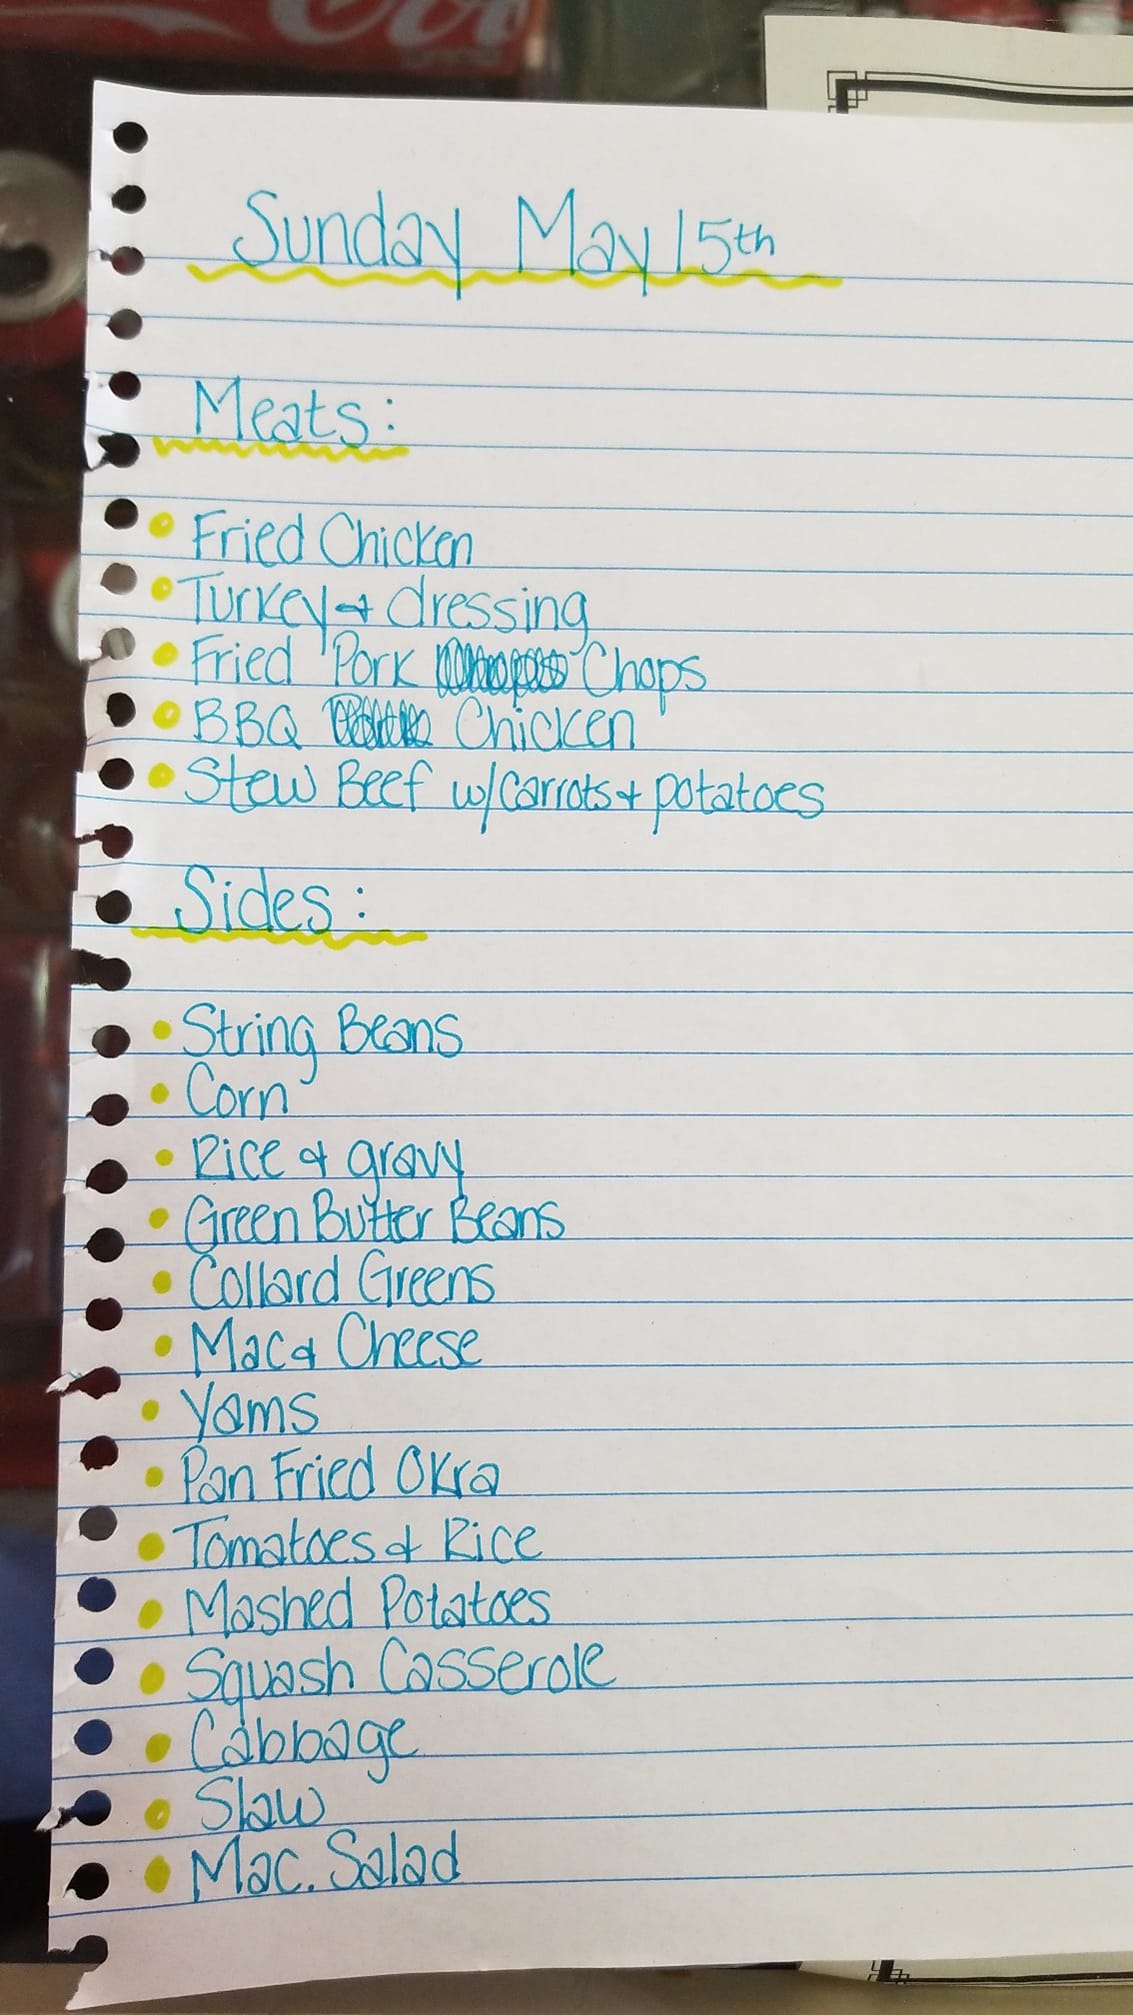 Sunday May 15th
Meats:
• Fried Chicken
• Turkey & dressing
• Fried Pork Chops
• BBQ Chicken
• Stew Beef w/carrots & potatoes
Sides:
• String Beans
• Corn
• Rice & gravy
• Green Butter Beans
• Collard Greens
• Mac & Cheese
• Yams
• Pan Fried Okra
• Tomatoes & Rice
• Mashed Potatoes
• Squash Casserole
• Cabbage
• Slaw
• Mac. Salad